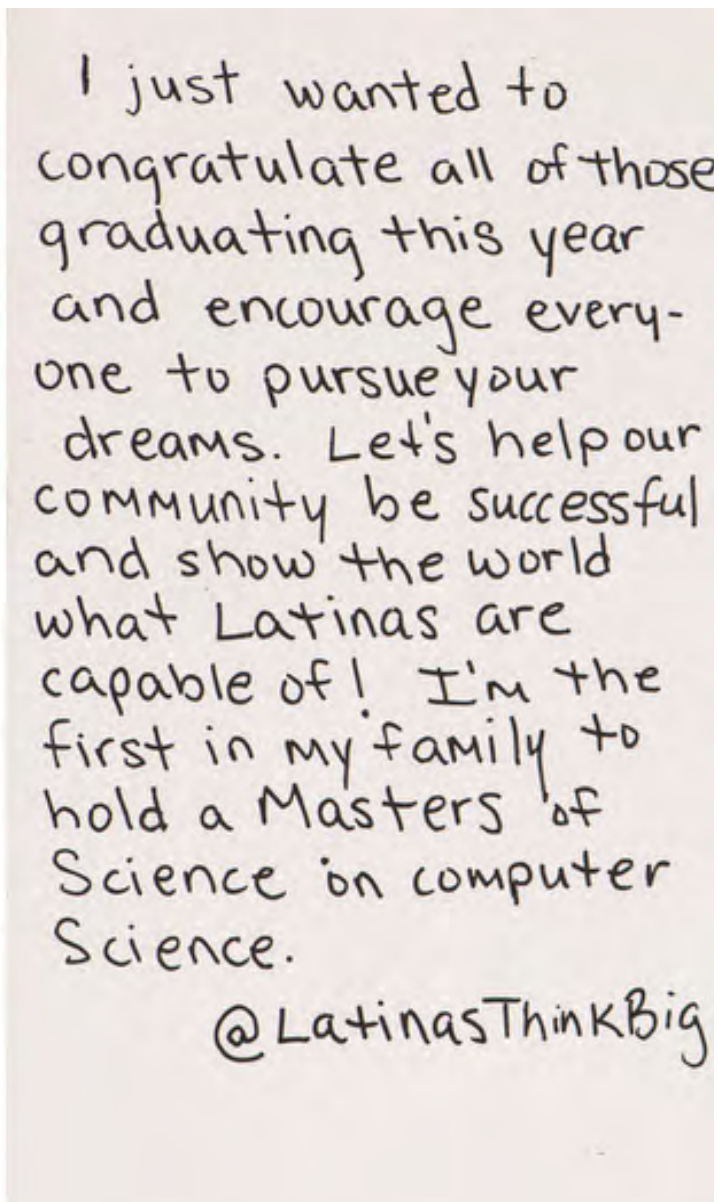 I just wanted to
congratulate all of those
graduating this year
and encourage every-
one to pursue your
dreams. Let's help our
community be successful
and show the world
what Latinas are
capable of! I'm the
first in my family to
hold a Masters of
Science on computer
Science.
@LatinasThinkBig